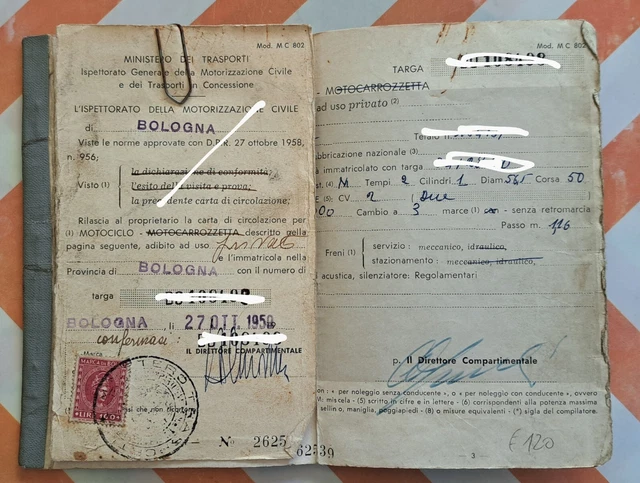 Mod. M C 802
MINISTERO DEI TRASPORTI
Ispettorato Generale della Motorizzazione Civile
e dei Trasporti in Concessione
L'ISPETTORATO DELLA MOTORIZZAZIONE CIVILE
di BOLOGNA
Viste le norme approvate con D.P.R. 27 ottobre 1958,
n. 956;
la dichiarazione di conformità;
Visto (1) l'esito della visita e prova;
la precedente carta di circolazione;
Rilascia al proprietario la carta di circolazione per
(1) MOTOCICLO - MOTOCARROZZETTA descritto nella
pagina seguente, adibito ad uso privato
e l'immatricola nella
Provincia di BOLOGNA con il numero di
targa
BOLOGNA, li 27 OTT 1959
IL DIRETTORE COMPARTIMENTALE
Marca
LIRE
che non
N° 2625
62539
Mod. M C 802
TARGA
MOTOCARROZZETTA
ad uso privato (2)
Telaio n.
fabbricazione nazionale (3)
immatricolato con targa
(4) M Tempi 2 Cilindri 1 Diam Corsa 50
(5) CV. 2 Due
Cambio a 3 marce (1) con - senza retromarcia
Passo m.
Freni (1) servizio: meccanico, idraulico,
stazionamento: meccanico, idraulico,
acustica, silenziatore: Regolamentari
p. Il Direttore Compartimentale
: « per noleggio senza conducente », o « per noleggio con conducente », ovvero
M: miscela - (5) scritto in cifre e in lettere - (6) corrispondenti alla potenza massima
sellino, maniglia, poggiapiedi - (8) o misure equivalenti - (*) sigla del compilatore.
— 3 —
€ 120